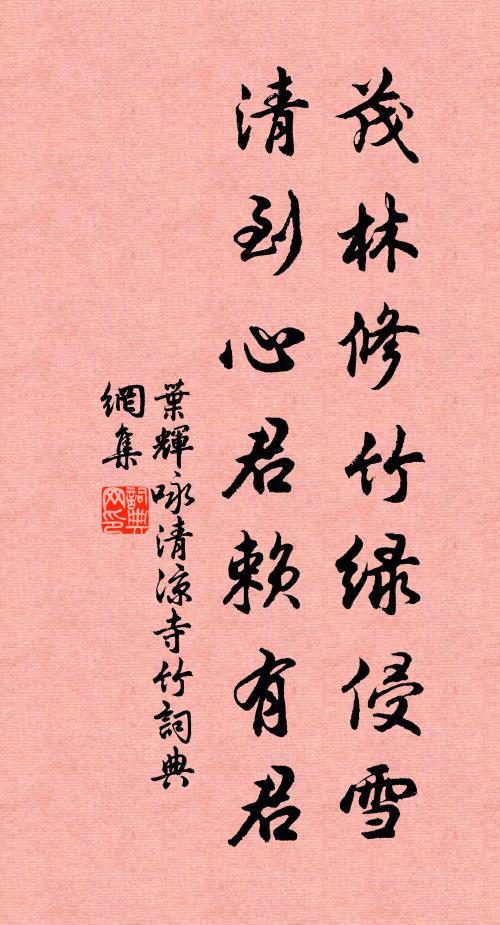 茂林修竹绿侵雪
清到心君赖有君
葉輝咏清凉寺竹詞典
網集
詞典
网印